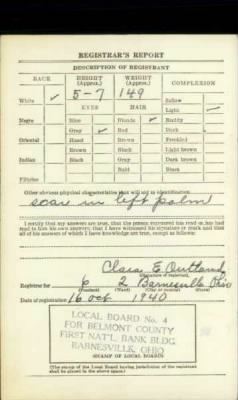 REGISTRAR'S REPORT
DESCRIPTION OF REGISTRANT
RACE
HEIGHT (Approx.)
WEIGHT (Approx.)
COMPLEXION
White ✓
5-7
149
Sallow
Light ✓
EYES
HAIR
Negro
Blue
Blonde ✓
Ruddy
Gray ✓
Red
Dark
Oriental
Hazel
Brown
Freckled
Brown
Black
Light brown
Indian
Black
Gray
Dark brown
Bald
Black
Filipino
Other obvious physical characteristics that will aid in identification
scar in left palm
I certify that my answers are true; that the person registered has read or has had
read to him his own answers; that I have witnessed his signature or mark and that
all of his answers of which I have knowledge are true, except as follows:
Clara E. Outland
(Signature of registrar)
Registrar for 6 2 Barnesville Ohio
(Precinct) (Ward) (City or county) (State)
Date of registration 16 oct 1940
LOCAL BOARD No. 4
FOR BELMONT COUNTY
FIRST NAT'L. BANK BLDG.
BARNESVILLE, OHIO
(STAMP OF LOCAL BOARD)
(The stamp of the Local Board having jurisdiction of the registrant
shall be placed in the above space.)